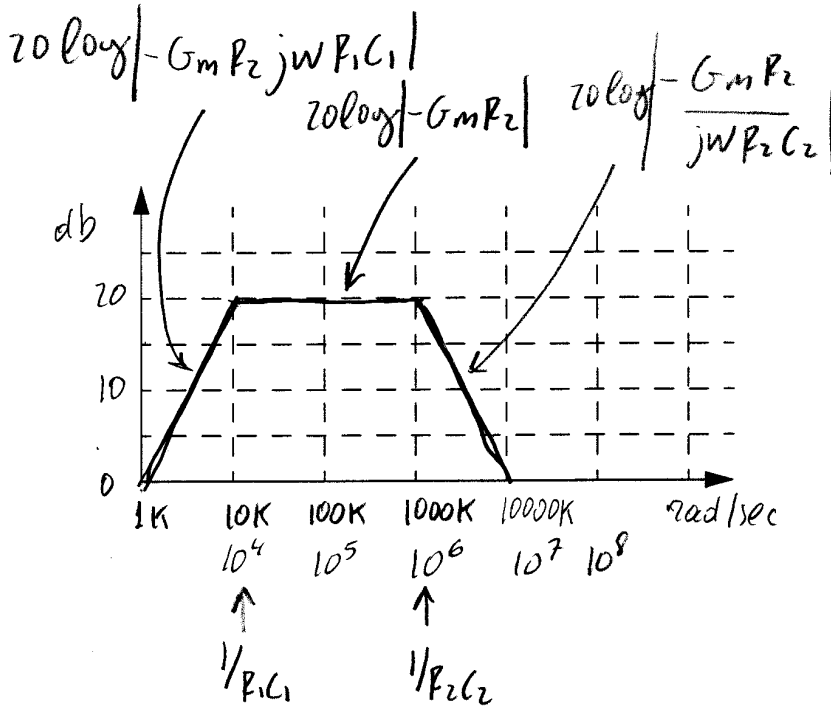 20 log|-GmR2 jwR1C1|
20log|-GmR2|
20log|-GmR2/jwR2C2|
db
20
10
0
1K 10K 100K 1000K 10000K rad/sec
10^4 10^5 10^6 10^7 10^8
1/R1C1 1/R2C2